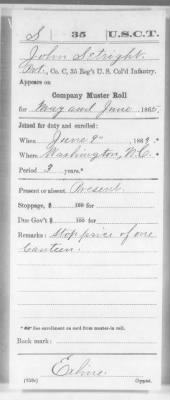 S | 35 | U.S.C.T.
John Setright
Pvt., Co. C, 35 Reg't U. S. Col'd Infantry.
Appears on
Company Muster Roll
for May and June, 1865.
Joined for duty and enrolled:
When June 9", 1863.*
Where Washington, N.C.*
Period 3 years.*
Present or absent Present
Stoppage, $ 100 for
Due Gov't $ 100 for
Remarks: Stop price of one
Canteen.
*See enrollment on card from muster-in roll.
Book mark:
(858c) Copyist.